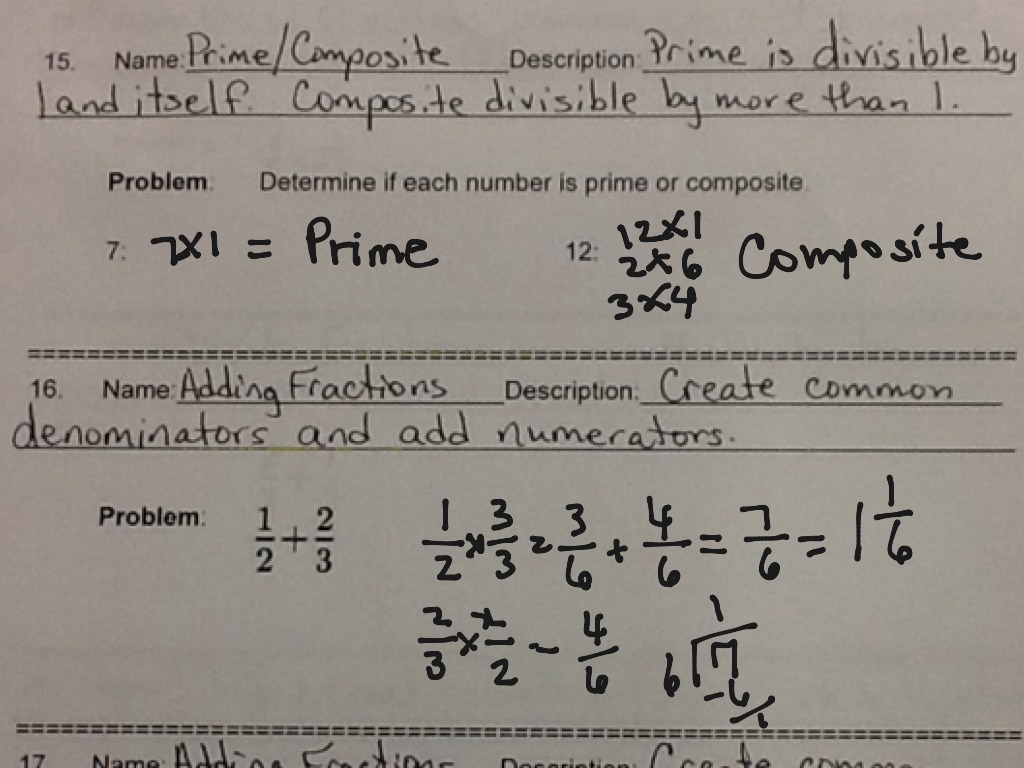 15. Name: Prime/Composite Description: Prime is divisible by
1 and itself. Composite divisible by more than 1.
Problem: Determine if each number is prime or composite.
7: 7x1 = Prime 12: 12x1 2x6 3x4 Composite
16. Name: Adding Fractions Description: Create common
denominators and add numerators.
Problem: 1/2 + 2/3 1/2 x 3/3 = 3/6 + 4/6 = 7/6 = 1 1/6
2/3 x 2/2 = 4/6 1 6)7 -6 1
17 Name: Adding Fractions Description: Create common